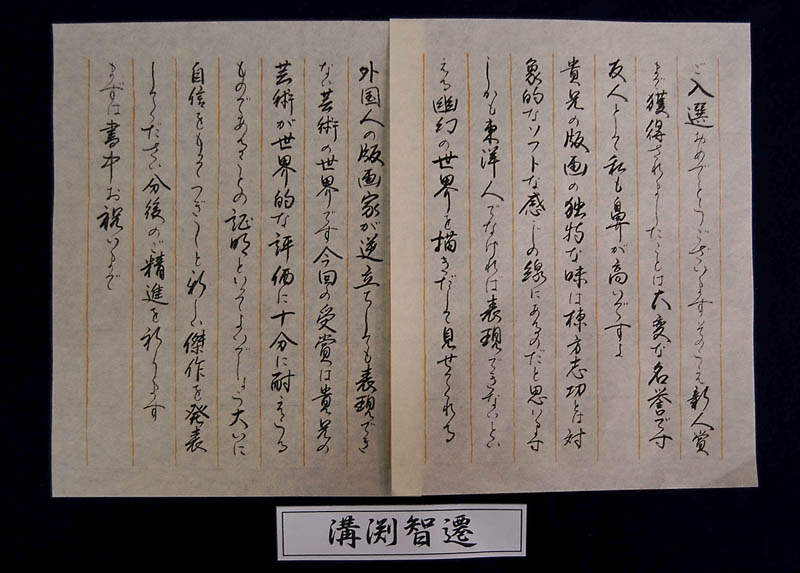 ご入選おめでとうございますそのうえ新人賞
まで獲得されましたことは大変な名誉です
友人として私も鼻が高いですよ
貴兄の版画の独特な味は棟方志功とは対
象的なソフトな感じの線にあるのだと思います
しかも東洋人でなければ表現できないとい
える幽幻の世界を描きだして見せてくれる
外国人の版画家が逆立ちしても表現でき
ない芸術の世界です今回の受賞は貴兄の
芸術が世界的な評価に十分に耐えうる
ものであることの証明といってよいでしょう大いに
自信をもってつぎつぎと新しい傑作を発表
してください今後のご精進を祈ります
まずは書中お祝いまで
溝渕智遷